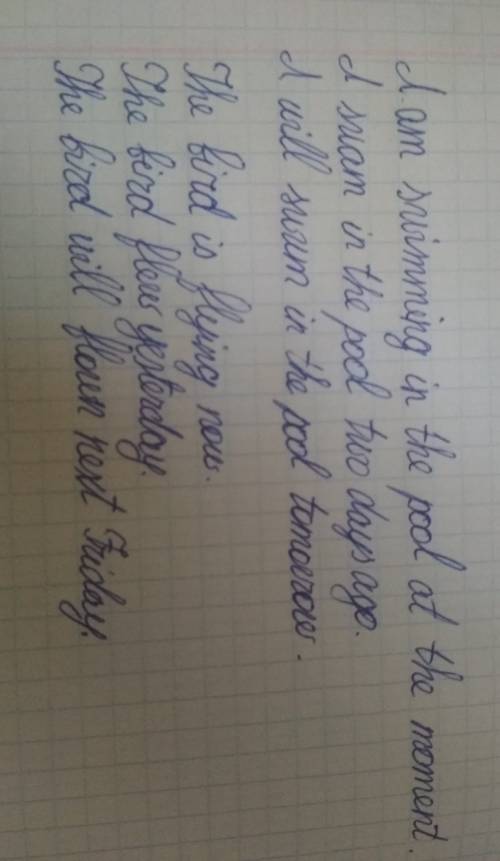 I am swimming in the pool at the moment.
I swam in the pool two days ago.
I will swum in the pool tomorrow.
The bird is flying now.
The bird flow yesterday.
The bird will flown next Friday.